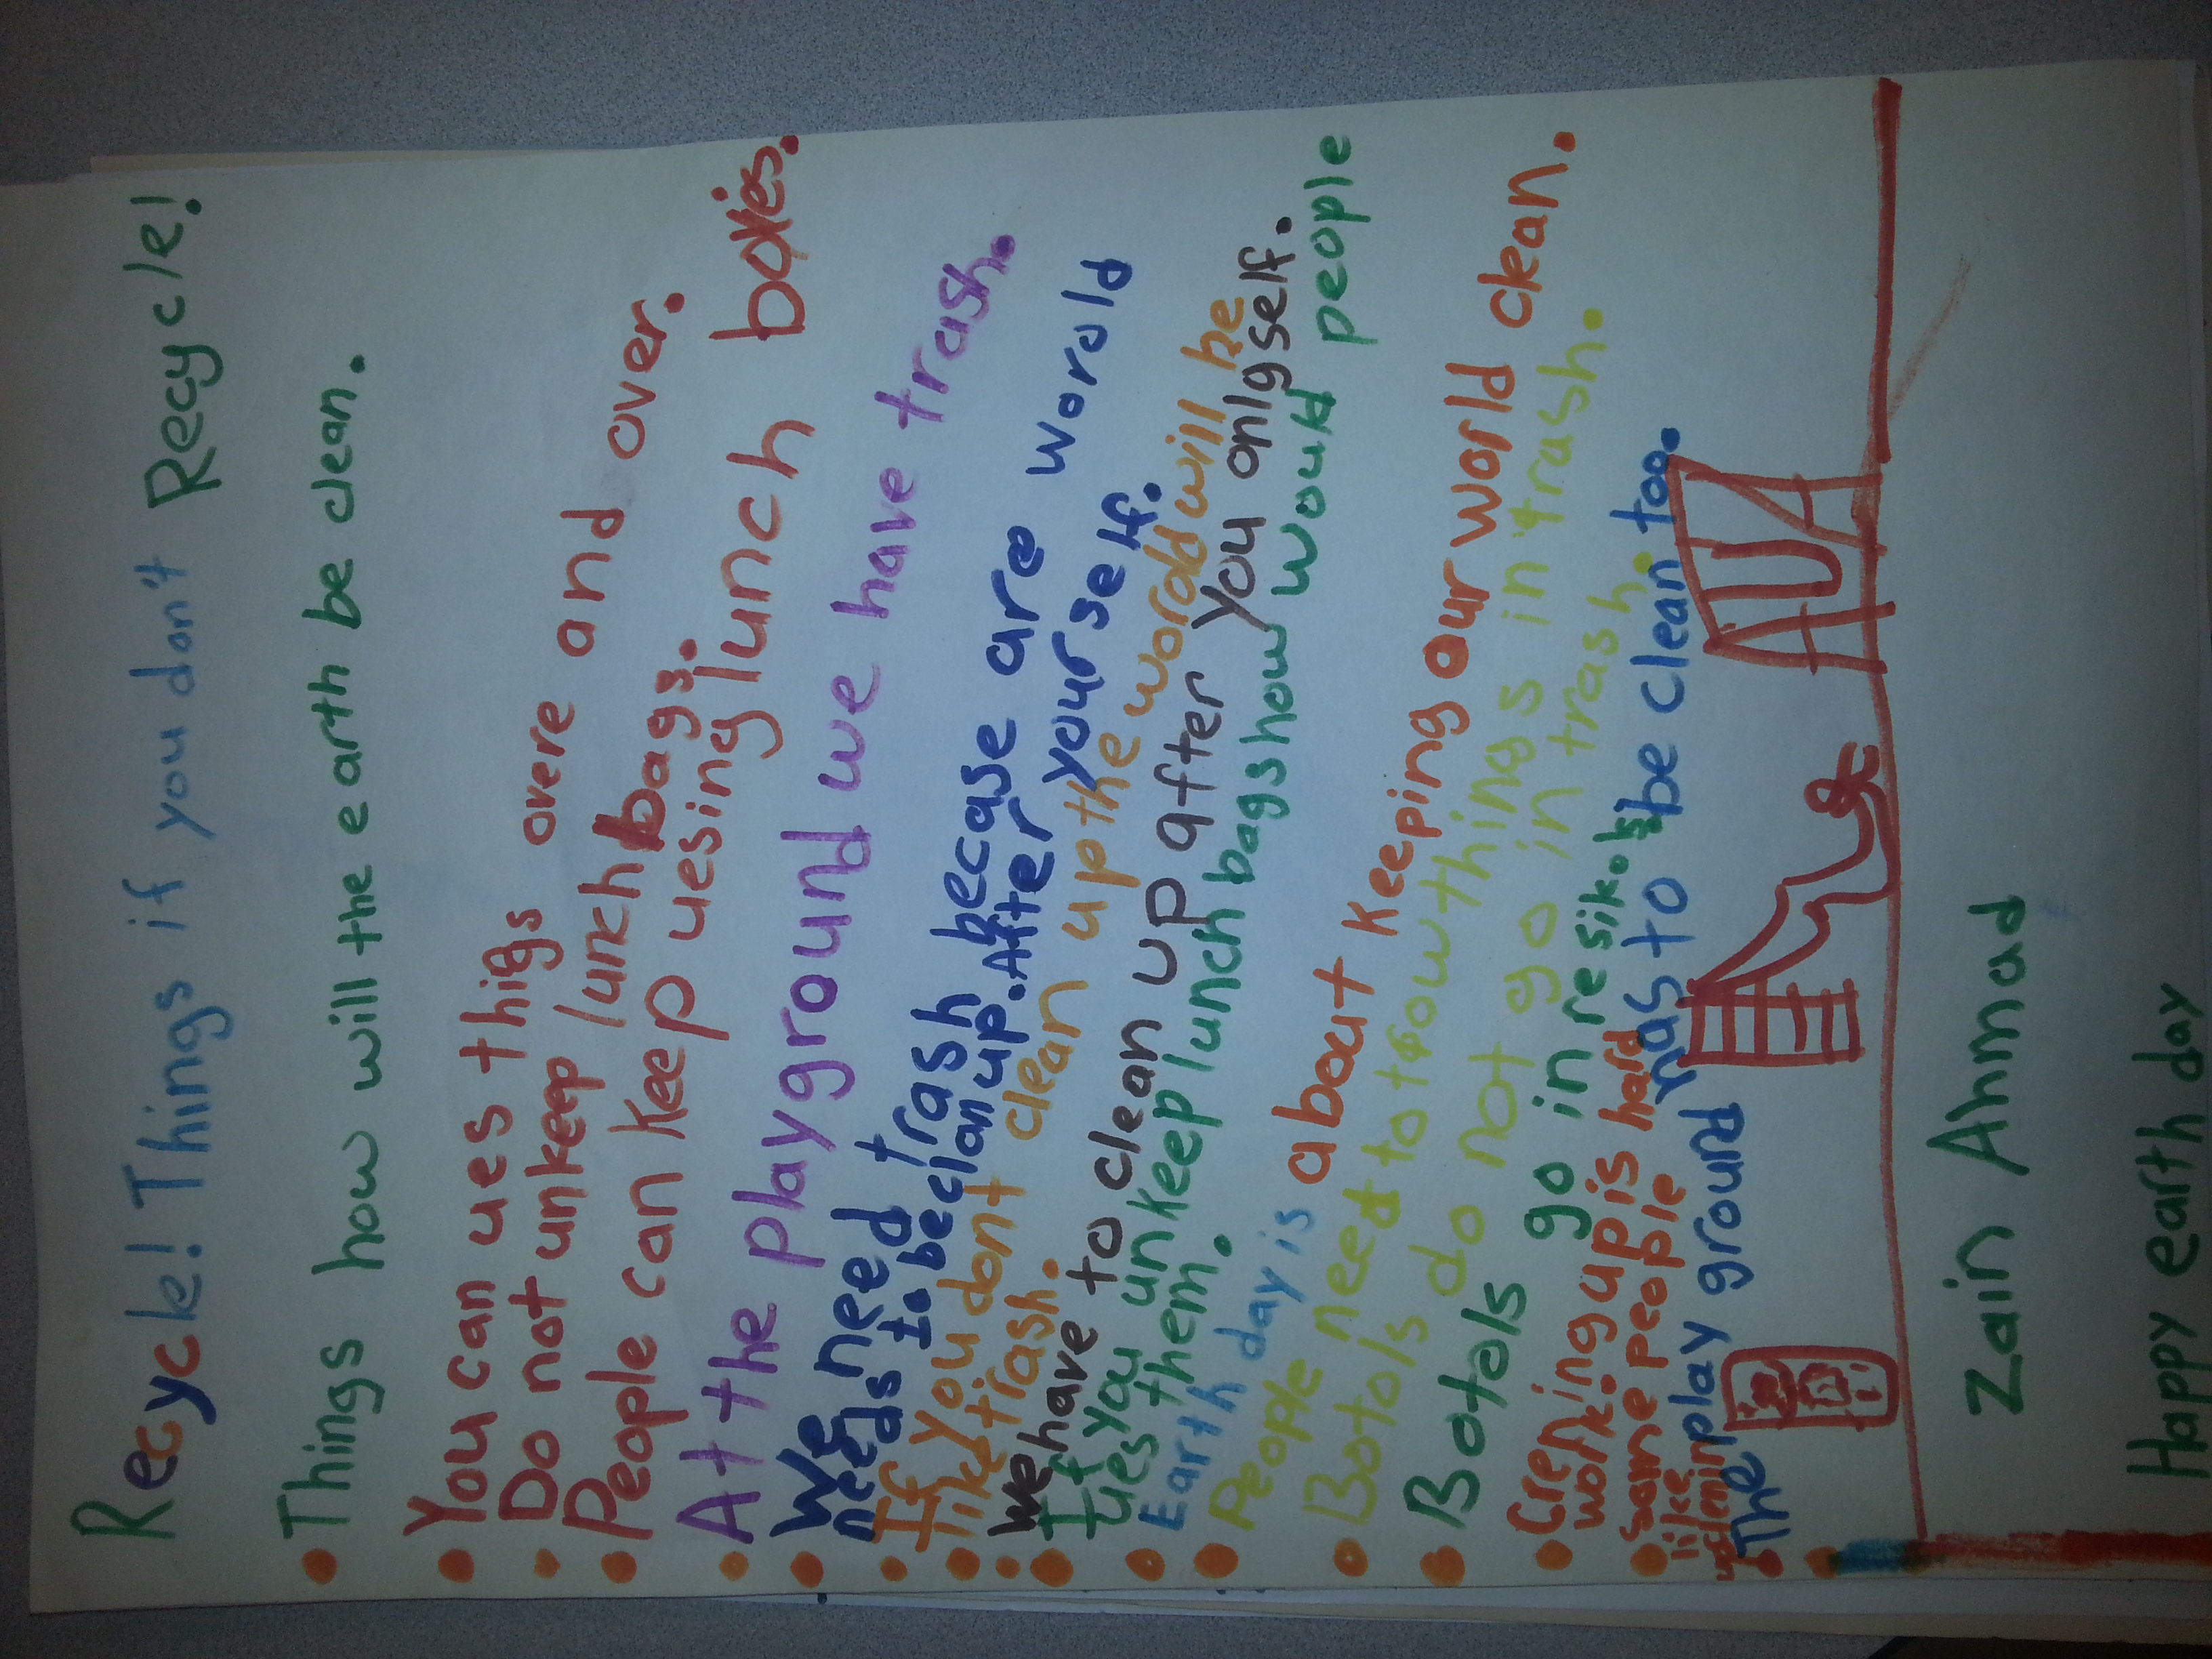 Recycle! Things if you don't Recycle!
Things how will the earth be clean.
You can ues this overe and over.
Do not unkeep lunch bags.
People can keep uesing lunch boxies.
At the playground we have trash.
We need trash because are world
needs to be clan up. After yourself.
If you dont clean up the world will be
like trash.
we have to clean up after you onlgself.
If you unkeep lunch bags how would people
ues them.
Earth day is about keeping our world clean.
People need to tow things in trash.
Botols do not go in trash.
Botols go in resikols
working up is hard
some people
like
The play ground has to be clean too.
Zain Ahmad
Happy earth day